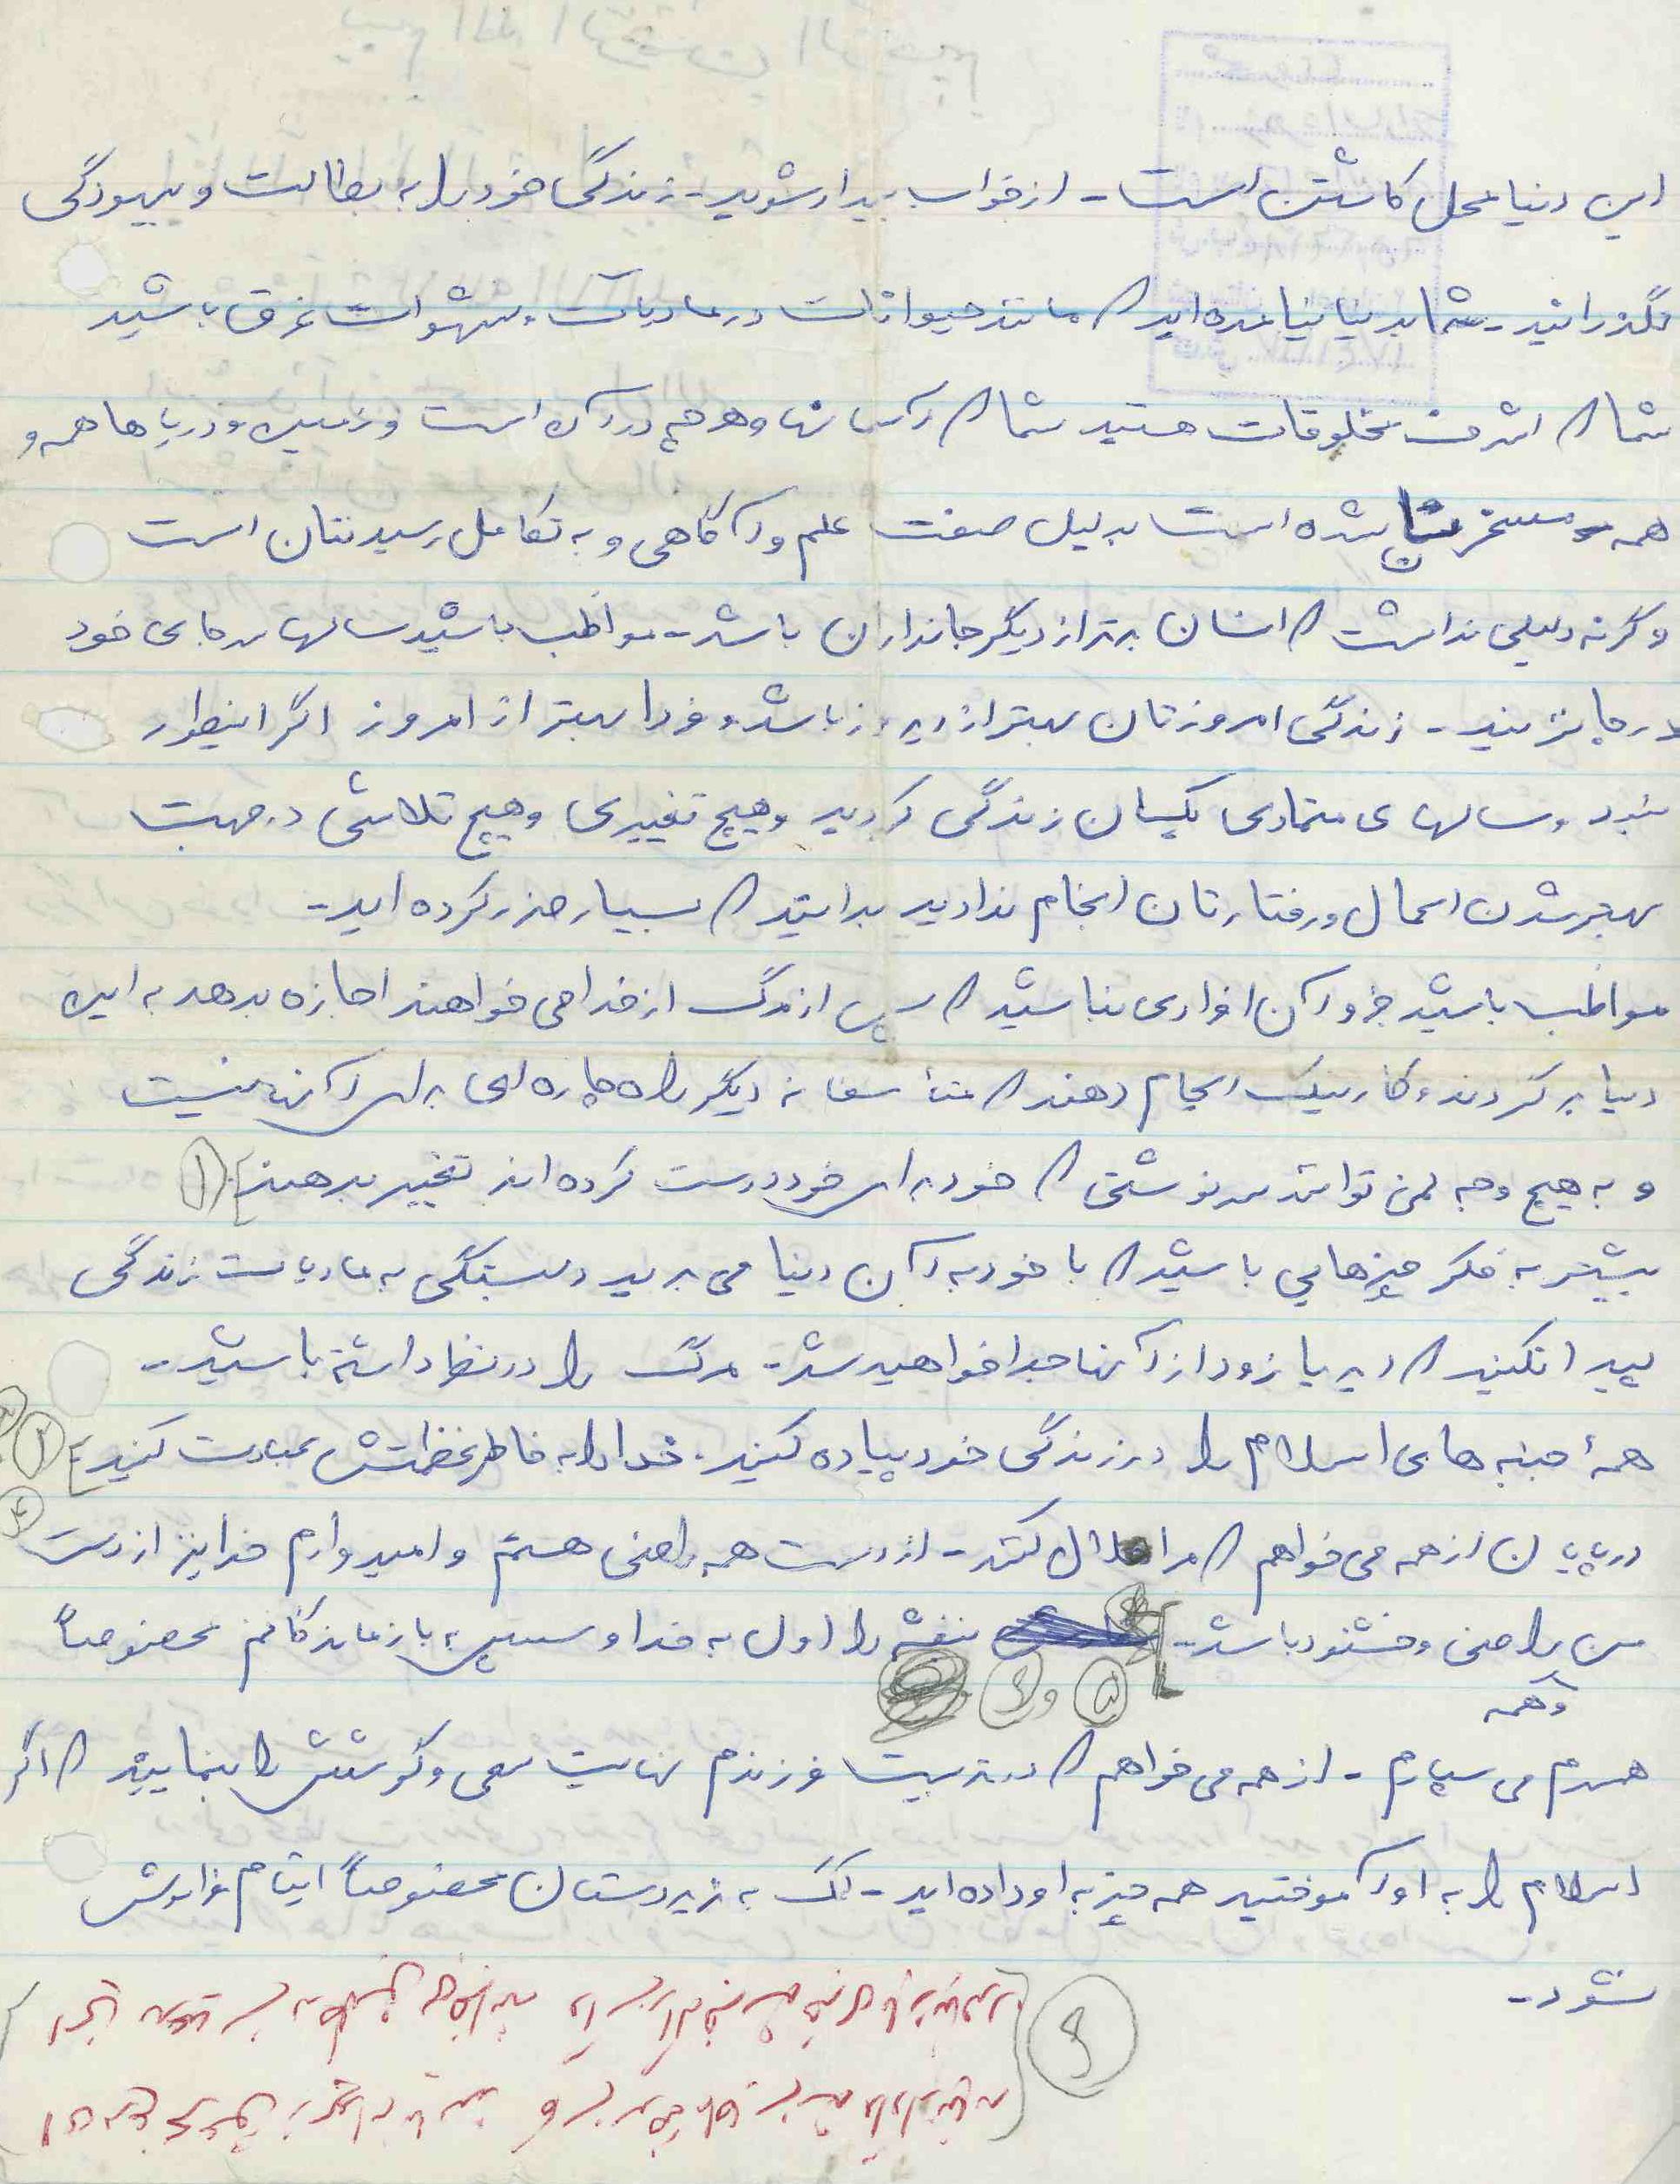 این دنیا محل کاشتن است - از خواب بیدار شوید - زندگی خود را به بطالت و بیهودگی
نگذرانید - شما بدنیا نیامده اید که مانند حیوانات در مادیات و شهوات غرق باشید
شما که اشرف مخلوقات هستید شما که آسمانها و هر چه در آن است و زمین و دریاها همه و
همه مسخرتان شده است بدلیل صفت علم و آگاهی و به تکامل رسیدنتان است
وگرنه دلیلی نداشت که انسان برتر از دیگر جانداران باشد - مواظب باشید سالها سر جای خود
درجا نزنید - زندگی امروزتان بهتر از دیروز باشد و فردا بهتر از امروز اگر اینطور
نبود و سالهای متمادی یکسان زندگی کردید و هیچ تغییری و هیچ تلاشی در جهت
بهتر شدن اعمال و رفتارتان انجام ندادید بدانید که بسیار ضرر کرده اید -
مواظب باشید جزو آن افرادی نباشید که پس از مرگ از خدا می خواهند اجازه بدهد به این
دنیا برگردند و کار نیک انجام دهند که متأسفانه دیگر راه چاره ای برای آنها نیست
و به هیچ وجه نمی توانند سرنوشتی که خود برای خود درست کرده اند تغییر بدهند] (۱)
بیشتر به فکر چیزهایی باشید که با خود به آن دنیا می برید دلبستگی به مادیات زندگی
پیدا نکنید که دیر یا زود از آنها جدا خواهید شد - مرگ را در نظر داشته باشید -
همهٔ جنبه های اسلام را در زندگی خود پیاده کنید. خدا را به خاطر عظمتش عبادت کنید] (۲)
در پایان از همه می خواهم که مرا حلال کنند - از دست همه راضی هستم و امیدوارم خدا نیز از دست
من راضی و خشنود باشد - [ بنفشه را اول به خدا و سپس به بازماندگانم مخصوصاً
(۵) و (۶)
و همه
همسرم می سپارم - از همه می خواهم که در تربیت فرزندم نهایت سعی و کوشش را بنمایید که اگر
اسلام را به او آموختید همه چیز به او داده اید - کمک به زیردستان مخصوصاً ایتام فراموش
نشود -